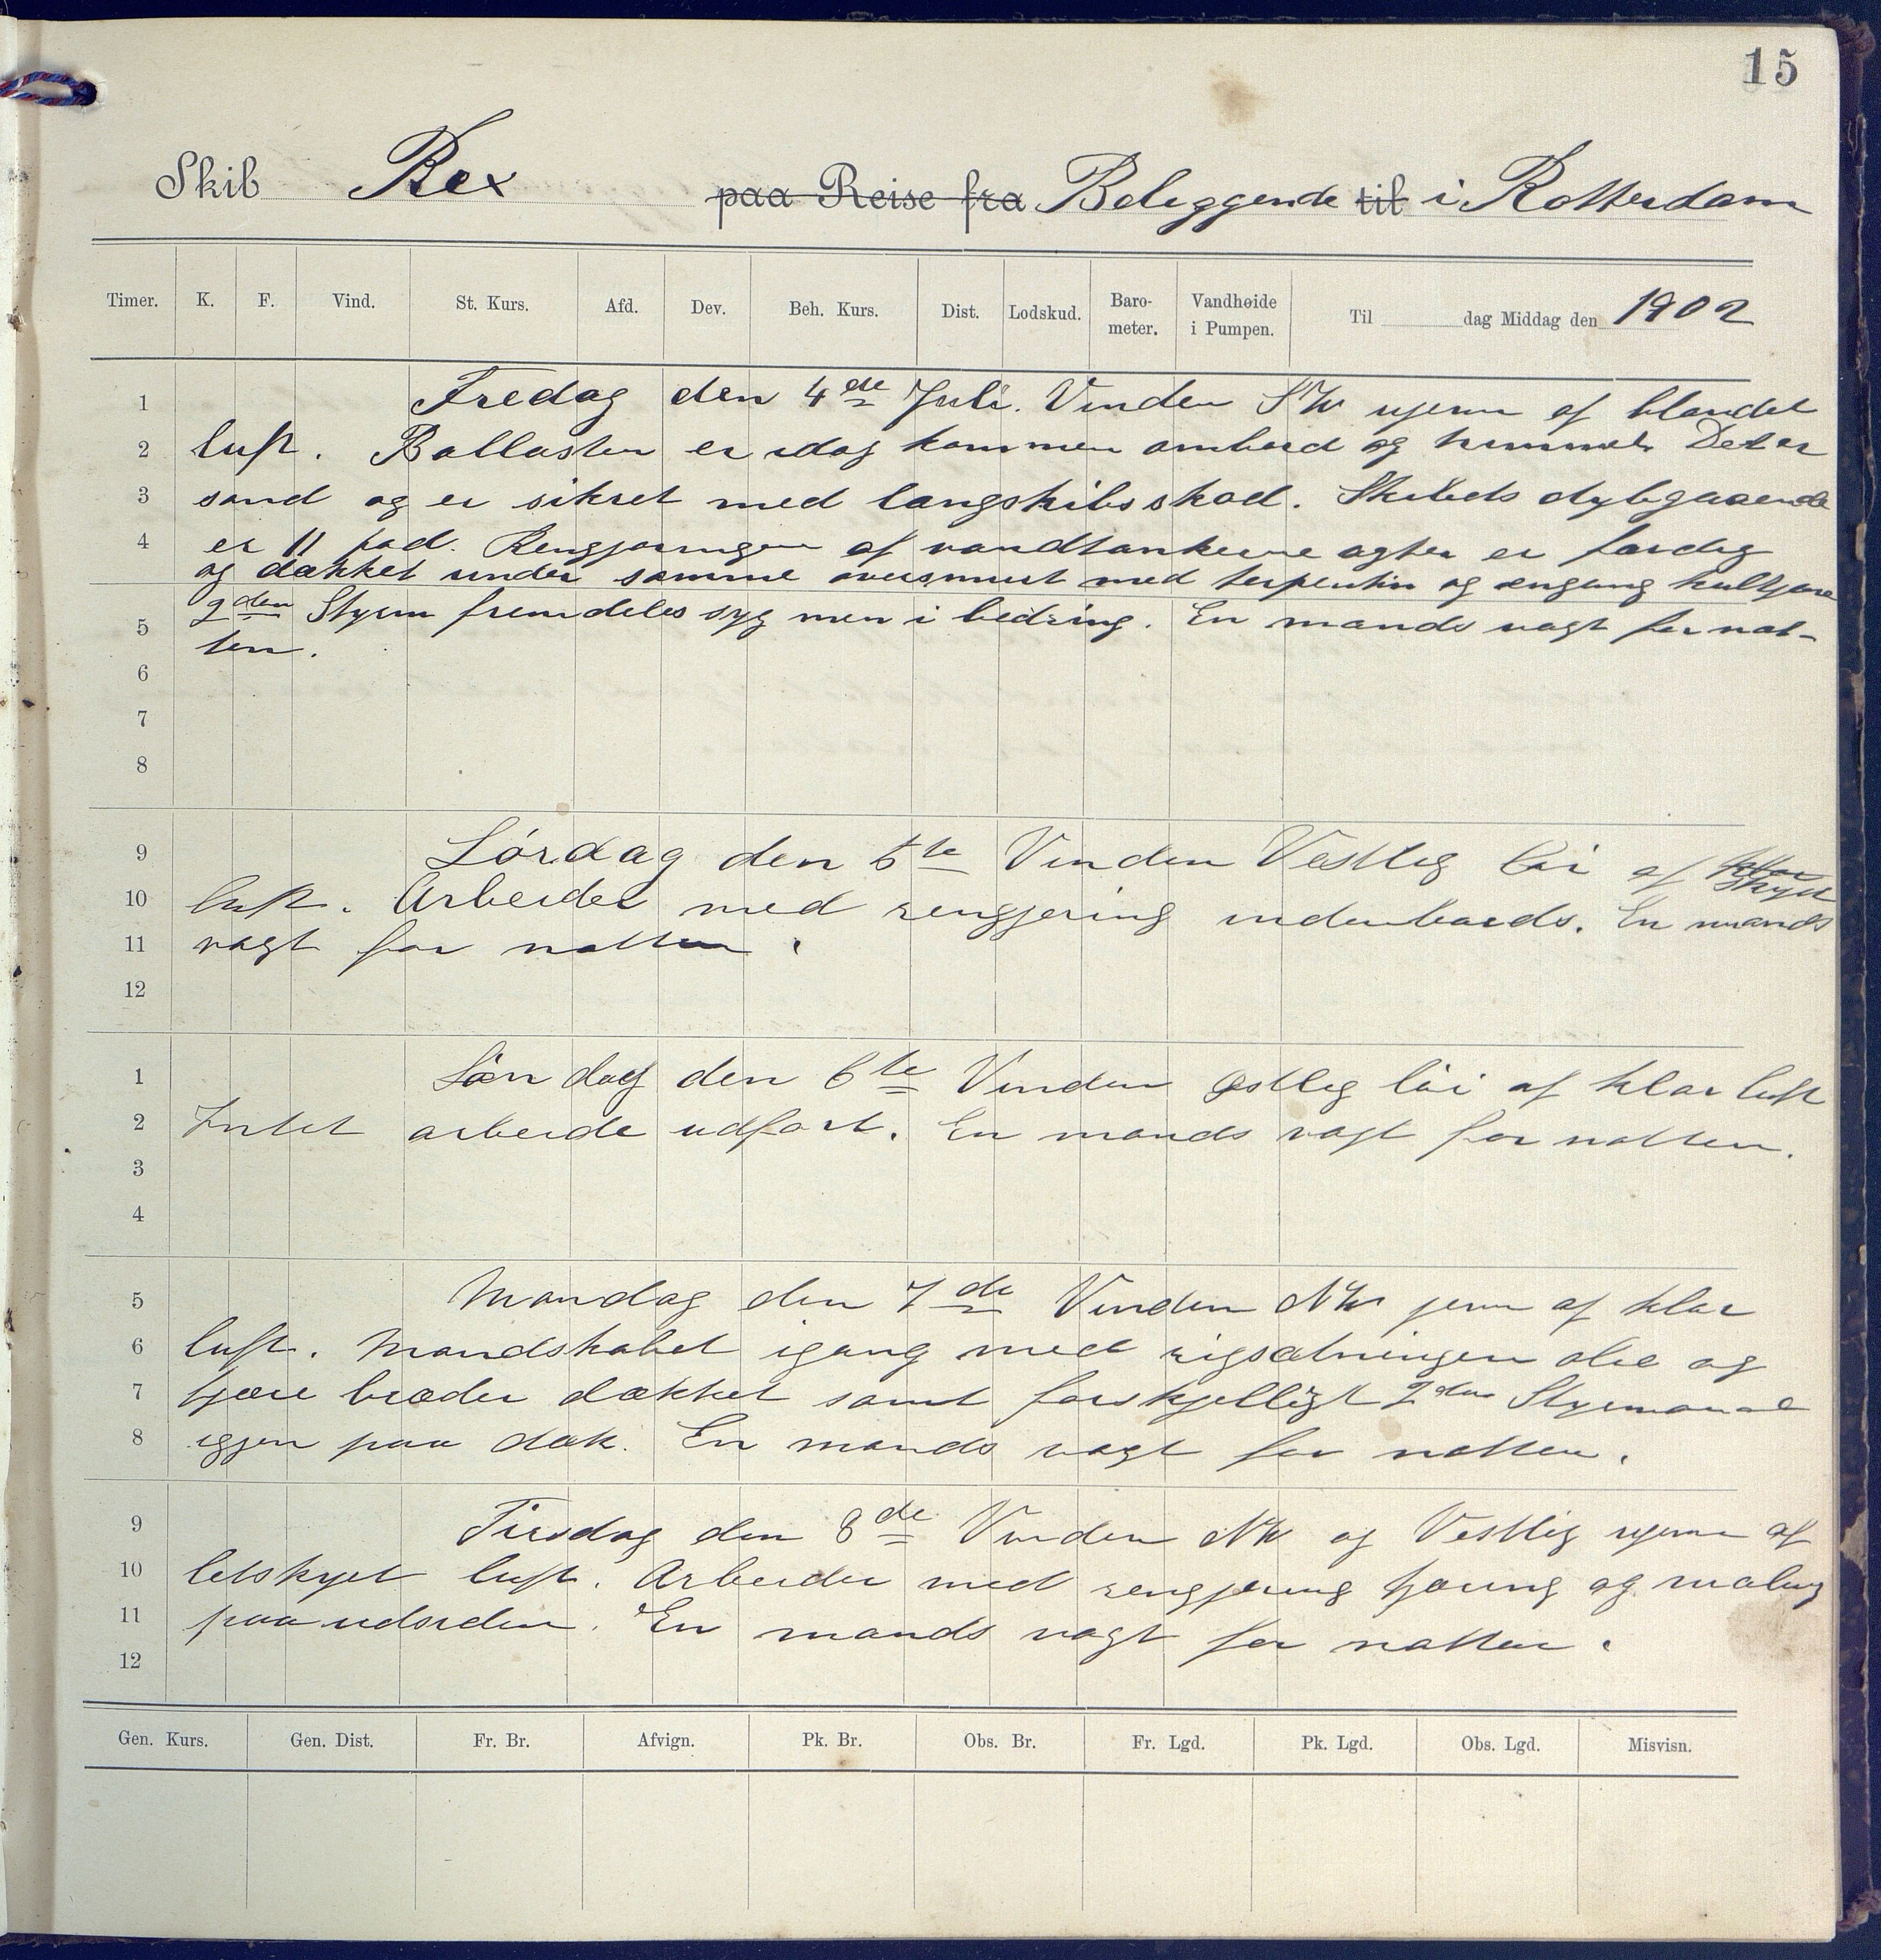 15
Skib Rex paa Reise fra Beliggende til i Rotterdam
Timer. K. F. Vind. St. Kurs. Afd. Dev. Beh. Kurs. Dist. Lodskud. Baro-meter. Vandhøide i Pumpen. Til dag Middag den 1902
1 Fredag den 4de Juli. Vinden SW ujevn af blandet
2 luft. Ballasten er idag kommen ombord og trimmet. Det er
3 sand og er sikret med langskibsskod. Skibets dybgaaende
4 er 11 fod. Rengjøringen af vandtankerne agter er færdig
og dækket under samme oversmurt med terpentin og engang kultjære
5 2den Styrm fremdeles syg men i bedring. En mands vagt for nat-
ten.
6
7
8
9 Lørdag den 5te Vinden Vestlig løi af klar skyet
10 luft. Arbeidet med rengjøring indenbords. En mands
11 vagt for natten.
12
1 Søndag den 6te Vinden østlig løi af klar luft
2 Intet arbeide udført. En mands vagt for natten.
3
4
5 Mandag den 7de Vinden NW jevn af klar
6 luft. Mandskabet igang med rigsætningen olie og
7 tjære bræder dækket samt forskjelligt 2den Styrmand
8 igjen paa dæk. En mands vagt for natten.
9 Tirsdag den 8de Vinden NW og Vestlig ujevn af
10 letskyet luft. Arbeider med rengjøring tjæring og maling
11 paa udsiden. En mands vagt for natten.
12
Gen. Kurs. Gen. Dist. Fr. Br. Afvign. Pk. Br. Obs. Br. Fr. Lgd. Pk. Lgd. Obs. Lgd. Misvisn.